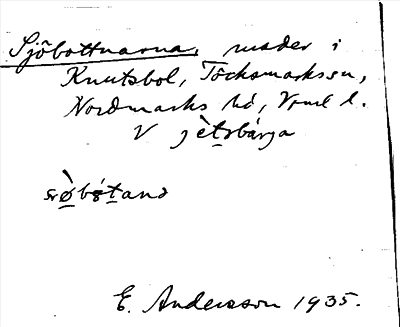 Sjöbottnarna, mader i
Knutsbol, Töcksmarks sn,
Nordmarks hd, Vrml l.
V jètsbárja
E. Andersson 1935.